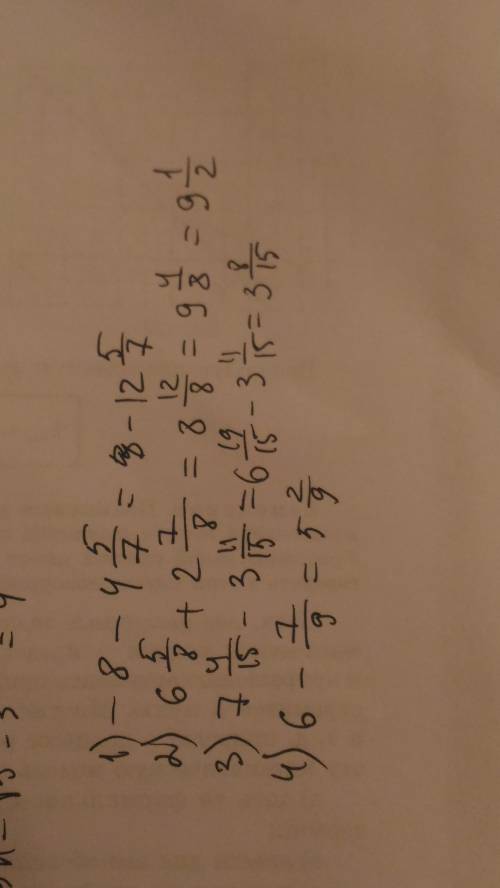 1) - 8 - 4 5/7 = - 12 5/7
2) 6 5/8 + 2 7/8 = 8 12/8 = 9 4/8 = 9 1/2
3) 7 4/15 - 3 11/15 = 6 19/15 - 3 11/15 = 3 8/15
4) 6 - 7/9 = 5 2/9